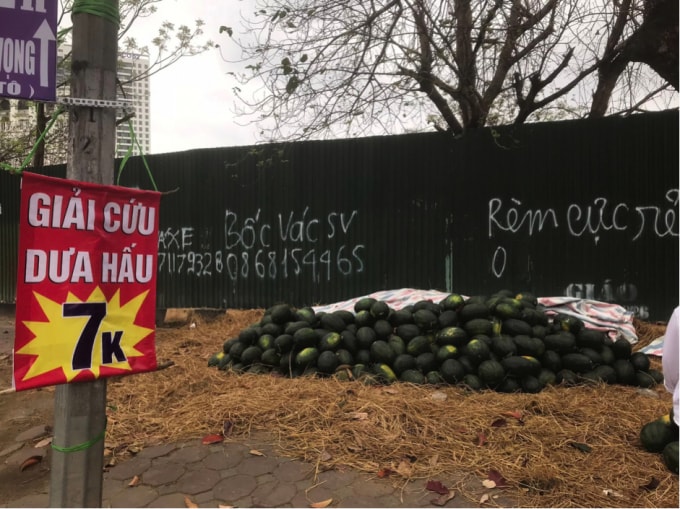 VỌNG
TÔ )
GIẢI CỨU
DƯA HẤU
7K
AXE
Bốc Vác SV
0868154465
Rèm cực rẻ
0
GIÁO